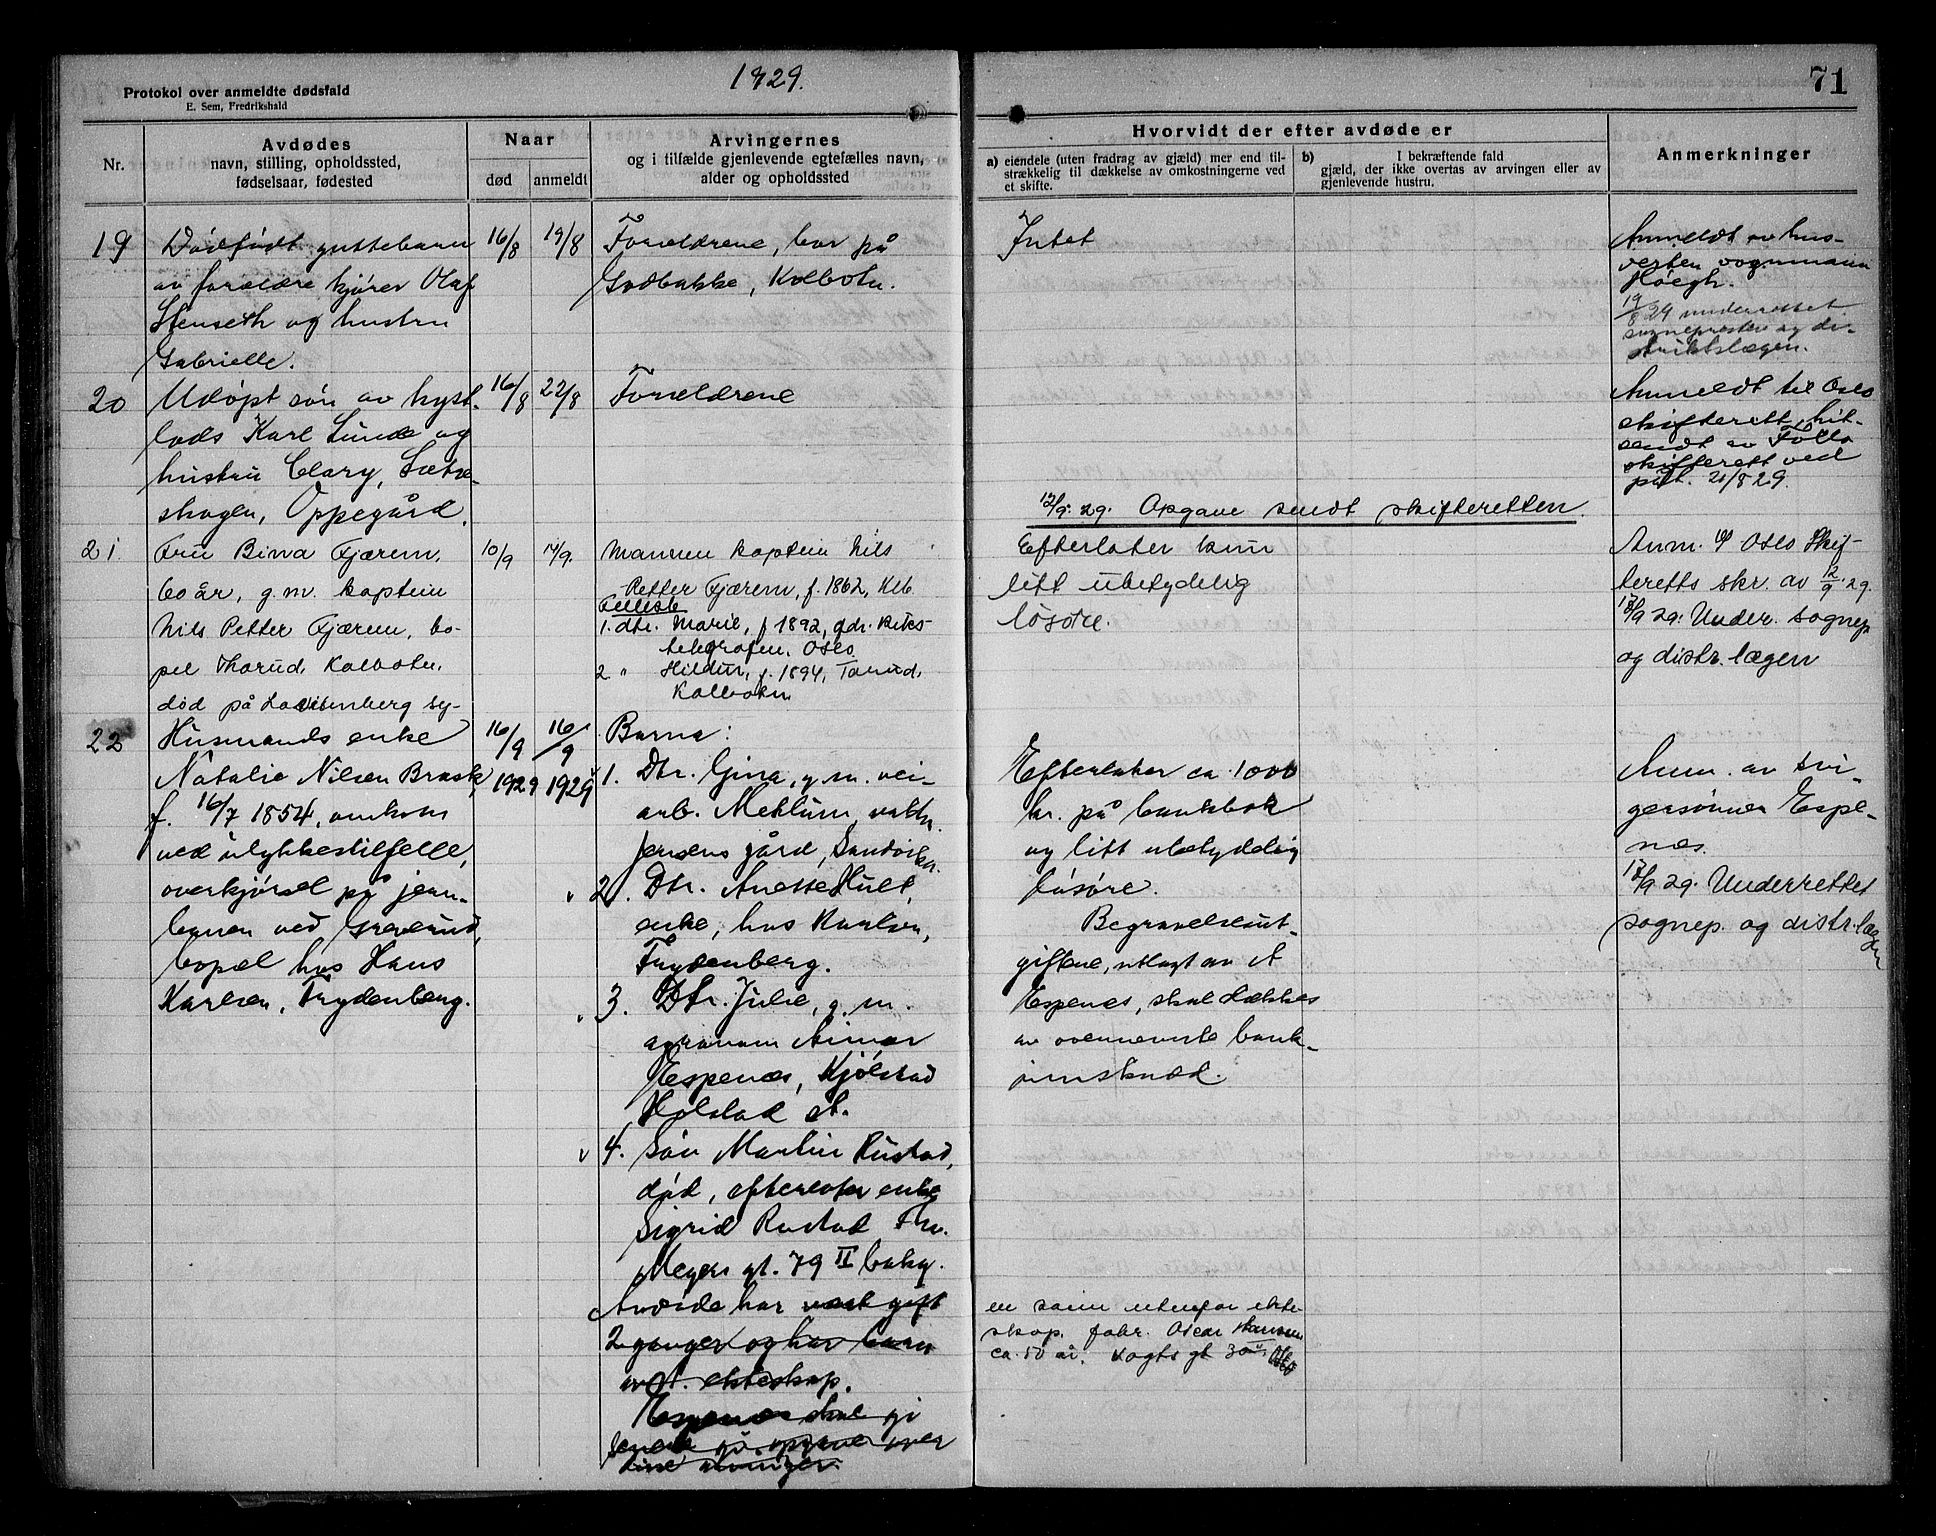 Protokol over anmeldte dødsfald
E. Sem, Fredrikshald
1929.
71
Nr.
Avdødes
navn, stilling, opholdssted,
fødselsaar, fødested
Naar
død
anmeldt
Arvingernes
og i tilfælde gjenlevende egtefælles navn,
alder og opholdssted
Hvorvidt der efter avdøde er
a) eiendele (uten fradrag av gjæld) mer end til-
strækkelig til dækkelse av omkostningerne ved
et skifte.
b) I bekræftende fald
gjæld, der ikke overtas av arvingen eller av
gjenlevende hustru.
Anmerkninger
19
Dødfødt guttebarn
av forældre kjører Olaf
Stenseth og hustru
Gabrielle.
16/8
19/8
Forældrene, bor på
Godbakke, Kolbotn.
Intet
Anmeldt av hus-
verten vognmann
Höegh.
19/8 29 underrettet
sogneprosten og di-
striktslægen.
20
Udøpt søn av
Karl Sunde og
hustru Clary, Sætre-
skogen, Oppegård.
16/8
22/8
Forældrene
Anmeldt til Oslo
skifterett, hit-
sendt av Follo
skifterett ved
påt. 21/8 29.
12/9. 29. Opgave sendt skifteretten.
21.
Fru Bina Fjærem,
60 år, g.m. kaptein
Nils Petter Fjærem, bo-
pel Thorud, Kolbotn.
død på Lovisenberg sy-
10/9
14/9.
Mannen kaptein Nils
Petter Fjærem, f. 1862, Klb.
Fellesb.
1. dtr. Marie, f 1892, adr. Riks-
telegrafen, Oslo
2 " Hildur, f. 1894, Torud,
Kolbotn
Efterlater kun
litt ubetydelig
løsøre.
Anm. Oslo Skif-
teretts skr. av 12/9. 29.
13/9 29. Under. sognep
og distr.lægen
22
Husmands enke
Natalie Nilsen Brask
f. 16/7 1854, omkom
ved ulykkestilfelle,
overkjørsel på jern-
banen ved Greverud,
bopæl hos Hans
Karlsen, Frydenberg.
16/9
1929
16/9
1929
Barna:
1. Dtr. Gina, g. m. vei-
arb. Mehlum,
Jensens gård, Sandvika.
2. Dtr. Anette Hult,
enke, hos Karlsen,
Frydenberg.
3. Dtr. Julie, g. m.
agronom Aimar
Espenæs, Kjølstad
Holstad st.
4. Søn Martin Rustad,
død, efterlater enke
Sigrid Rustad Thv.
Meyers gt. 79 II bakg.
Avdøde har vært gift
2 ganger og har barn
av 1. ekteskap.
Espenæs skal gi
senere opgave over
disse arvinger.
Efterlater ca. 1000
kr. på bankbok
og litt ubetydelig
løsøre.
Begravelsesut-
giftene, utlagt av A
Espenæs, skal dækkes
av ovennevnte bank-
innskud.
en sønn utenfor ekte-
skap. fabr. Oscar Hansen
ca. 50 år. Vogts gt 30
Oslo
Anm. av svi-
gersønnen Espe-
næs.
17/9 29. Underrettet
sognep. og distr.lægen